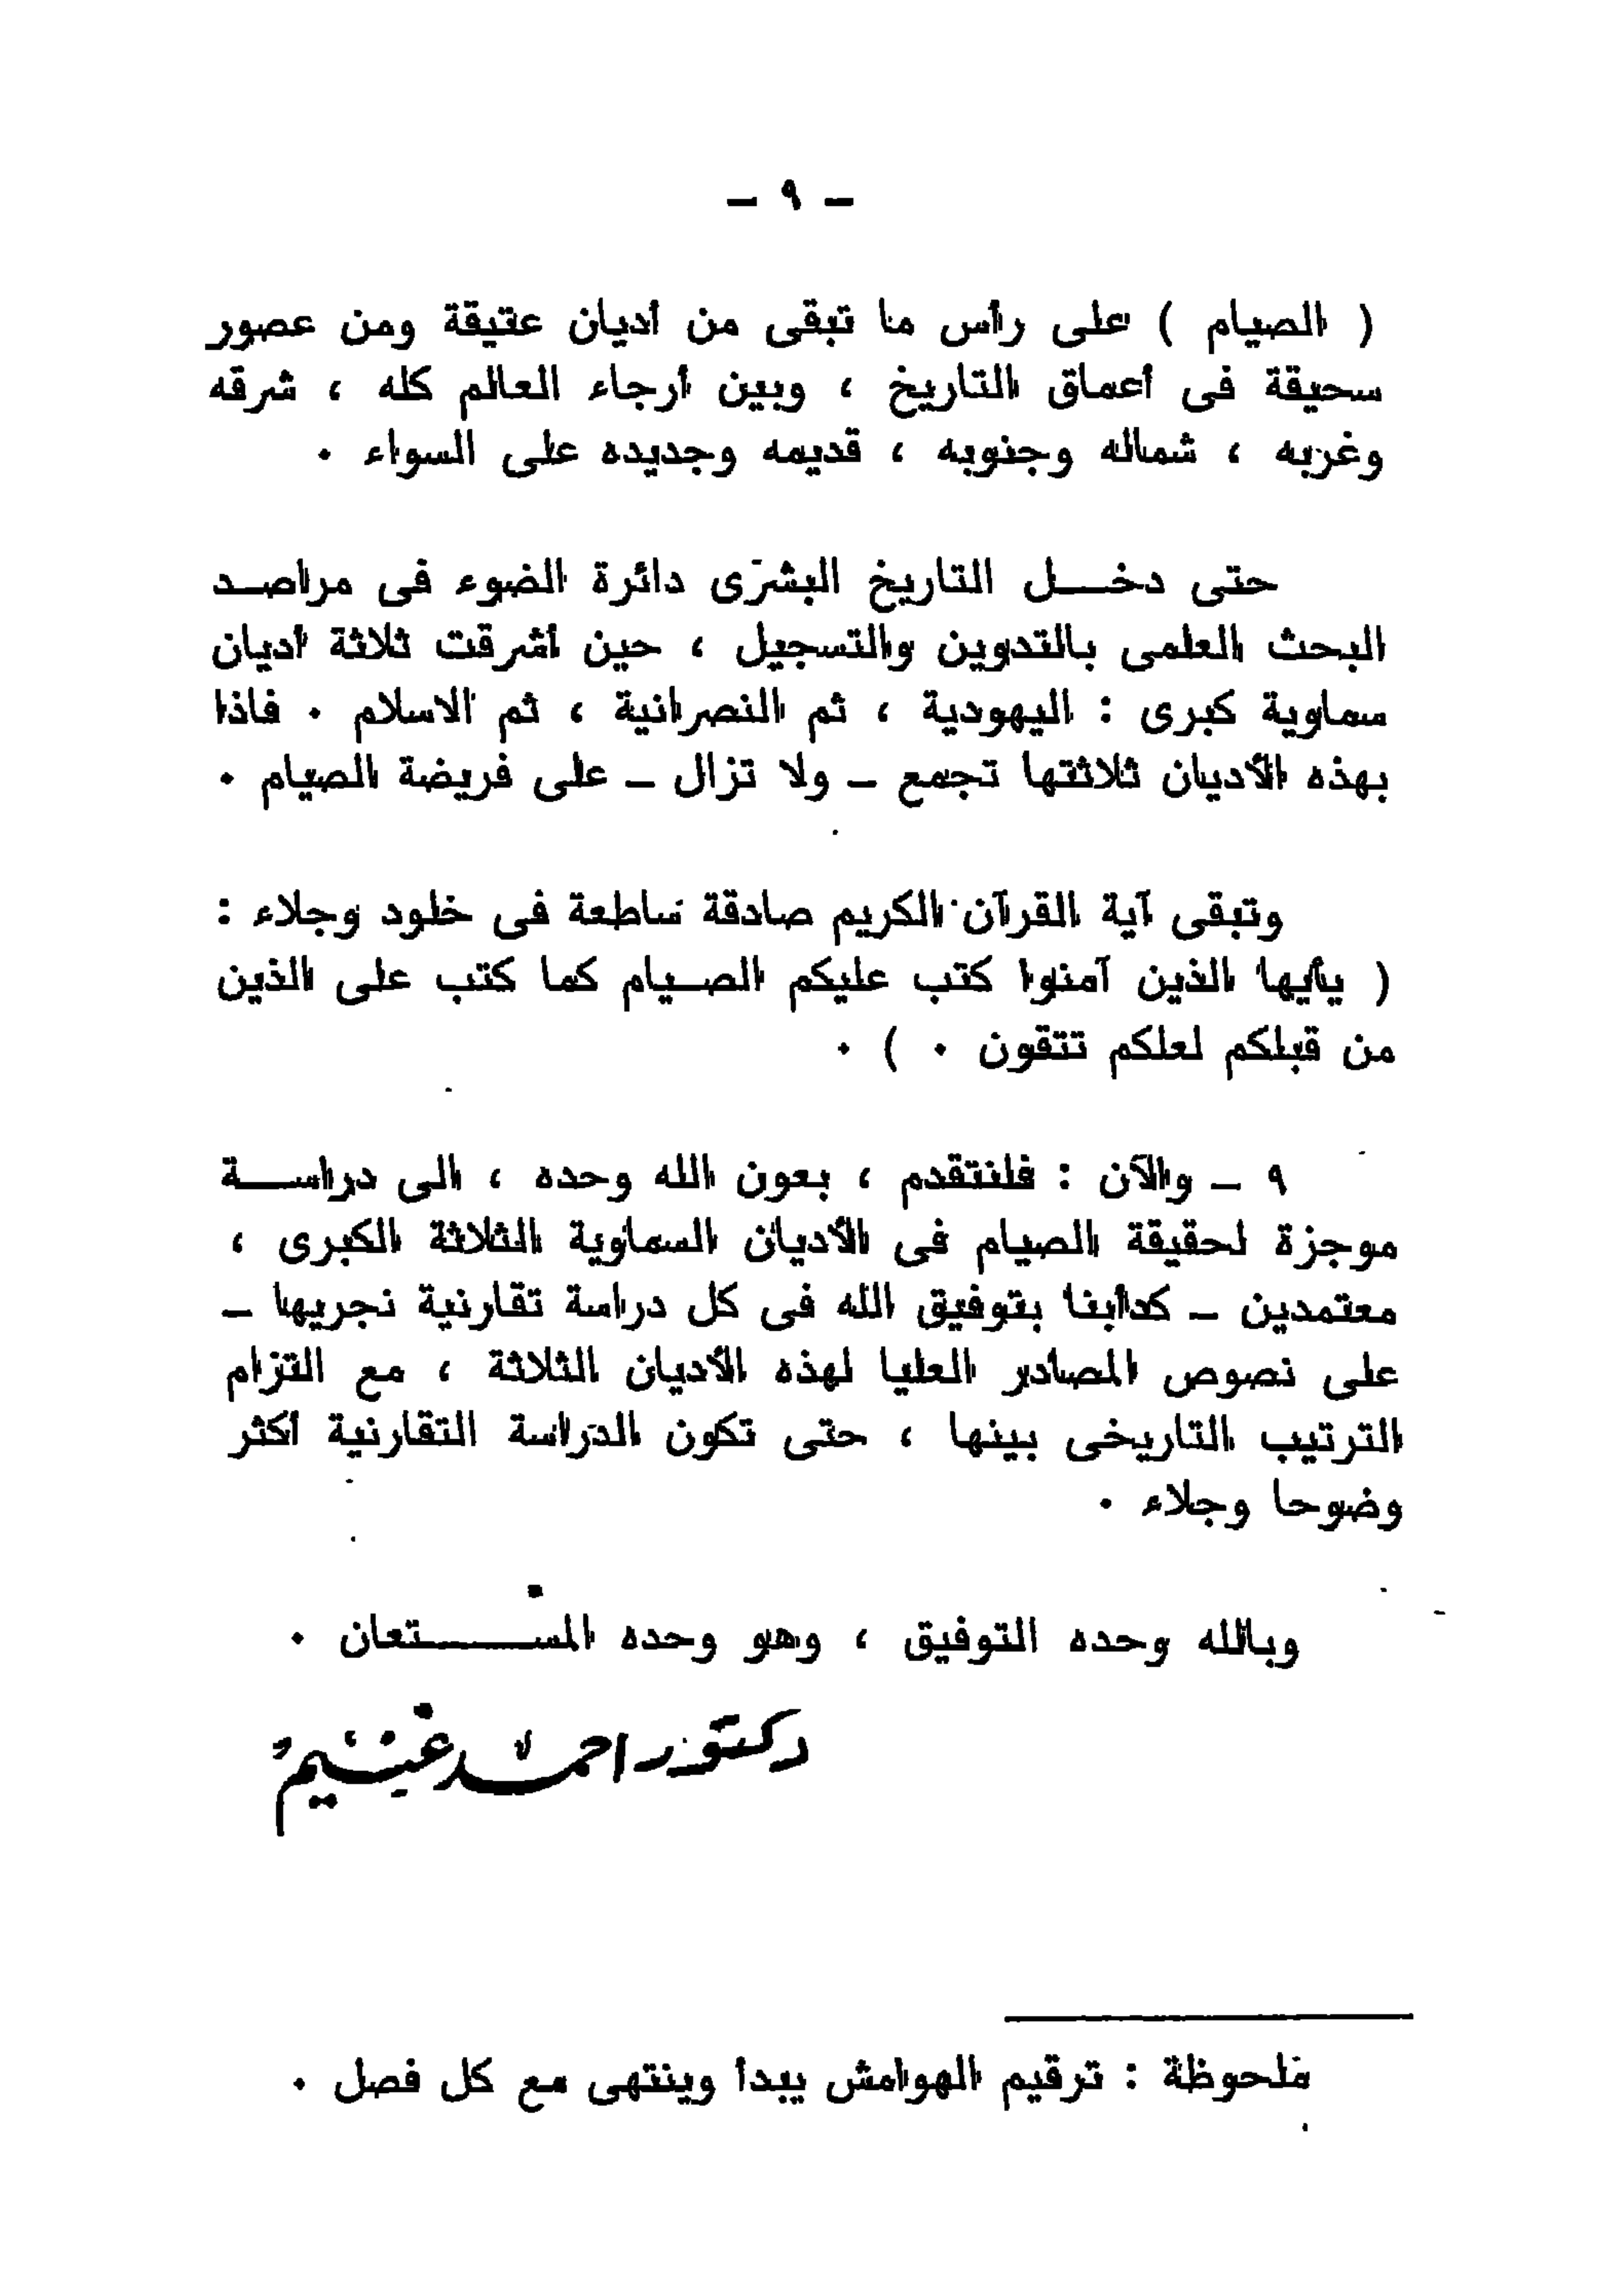 — ٩ —
( الصيام ) على رأس ما تبقى من أديان عتيقة ومن عصور
سحيقة فى أعماق التاريخ ، وبين أرجاء العالم كله ، شرقه
وغربه ، شماله وجنوبه ، قديمه وجديده على السواء .
حتى دخل التاريخ البشرى دائرة الضوء فى مراصد
البحث العلمى بالتدوين والتسجيل ، حين أشرقت ثلاثة أديان
سماوية كبرى : اليهودية ، ثم النصرانية ، ثم الاسلام . فاذا
بهذه الأديان ثلاثتها تجمع — ولا تزال — على فريضة الصيام .
وتبقى آية القرآن الكريم صادقة ساطعة فى خلود وجلاء :
( يأيها الذين آمنوا كتب عليكم الصيام كما كتب على الذين
من قبلكم لعلكم تتقون . ) .
٩ — والآن : فلنتقدم ، بعون الله وحده ، الى دراسة
موجزة لحقيقة الصيام فى الأديان السماوية الثلاثة الكبرى ،
معتمدين — كدأبنا بتوفيق الله فى كل دراسة تقارنية نجريها —
على نصوص المصادر العليا لهذه الأديان الثلاثة ، مع التزام
الترتيب التاريخى بينها ، حتى تكون الدراسة التقارنية أكثر
وضوحا وجلاء .
وبالله وحده التوفيق ، وهو وحده المستعان .
دكتور احمد غنيم
ملحوظة : ترقيم الهوامش يبدأ وينتهى مع كل فصل .